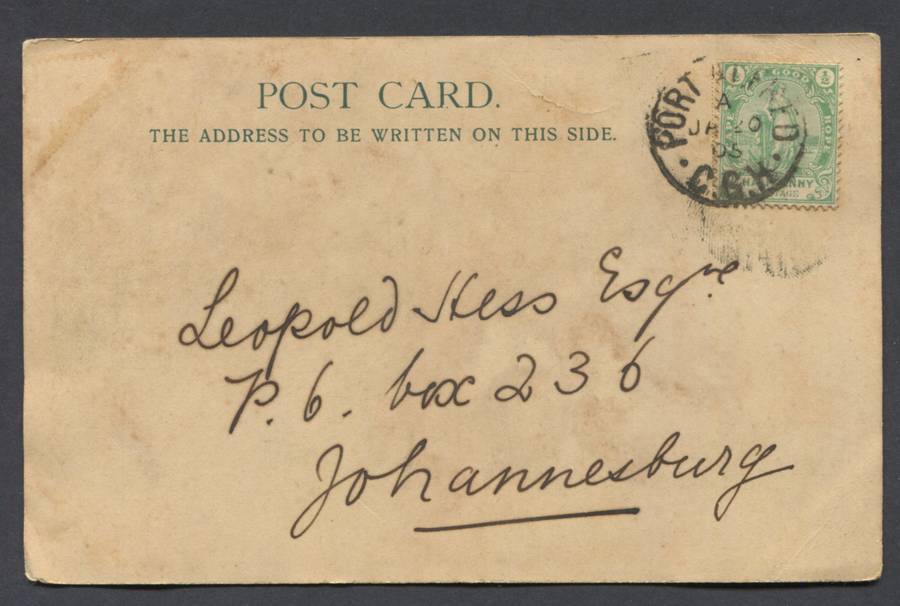 POST CARD.
THE ADDRESS TO BE WRITTEN ON THIS SIDE.
PORT ALFRED
A
JA 20
05
C.G.H.
GOOD HOPE
½
Leopold Hess Esqre
P.6. box 236
Johannesburg